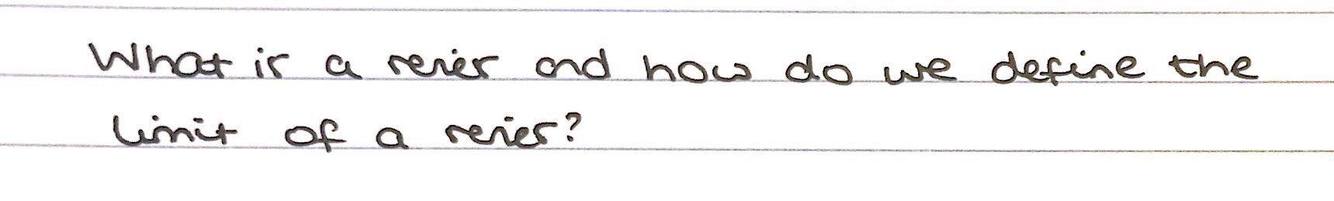 What is a series and how do we define the
limit of a series?